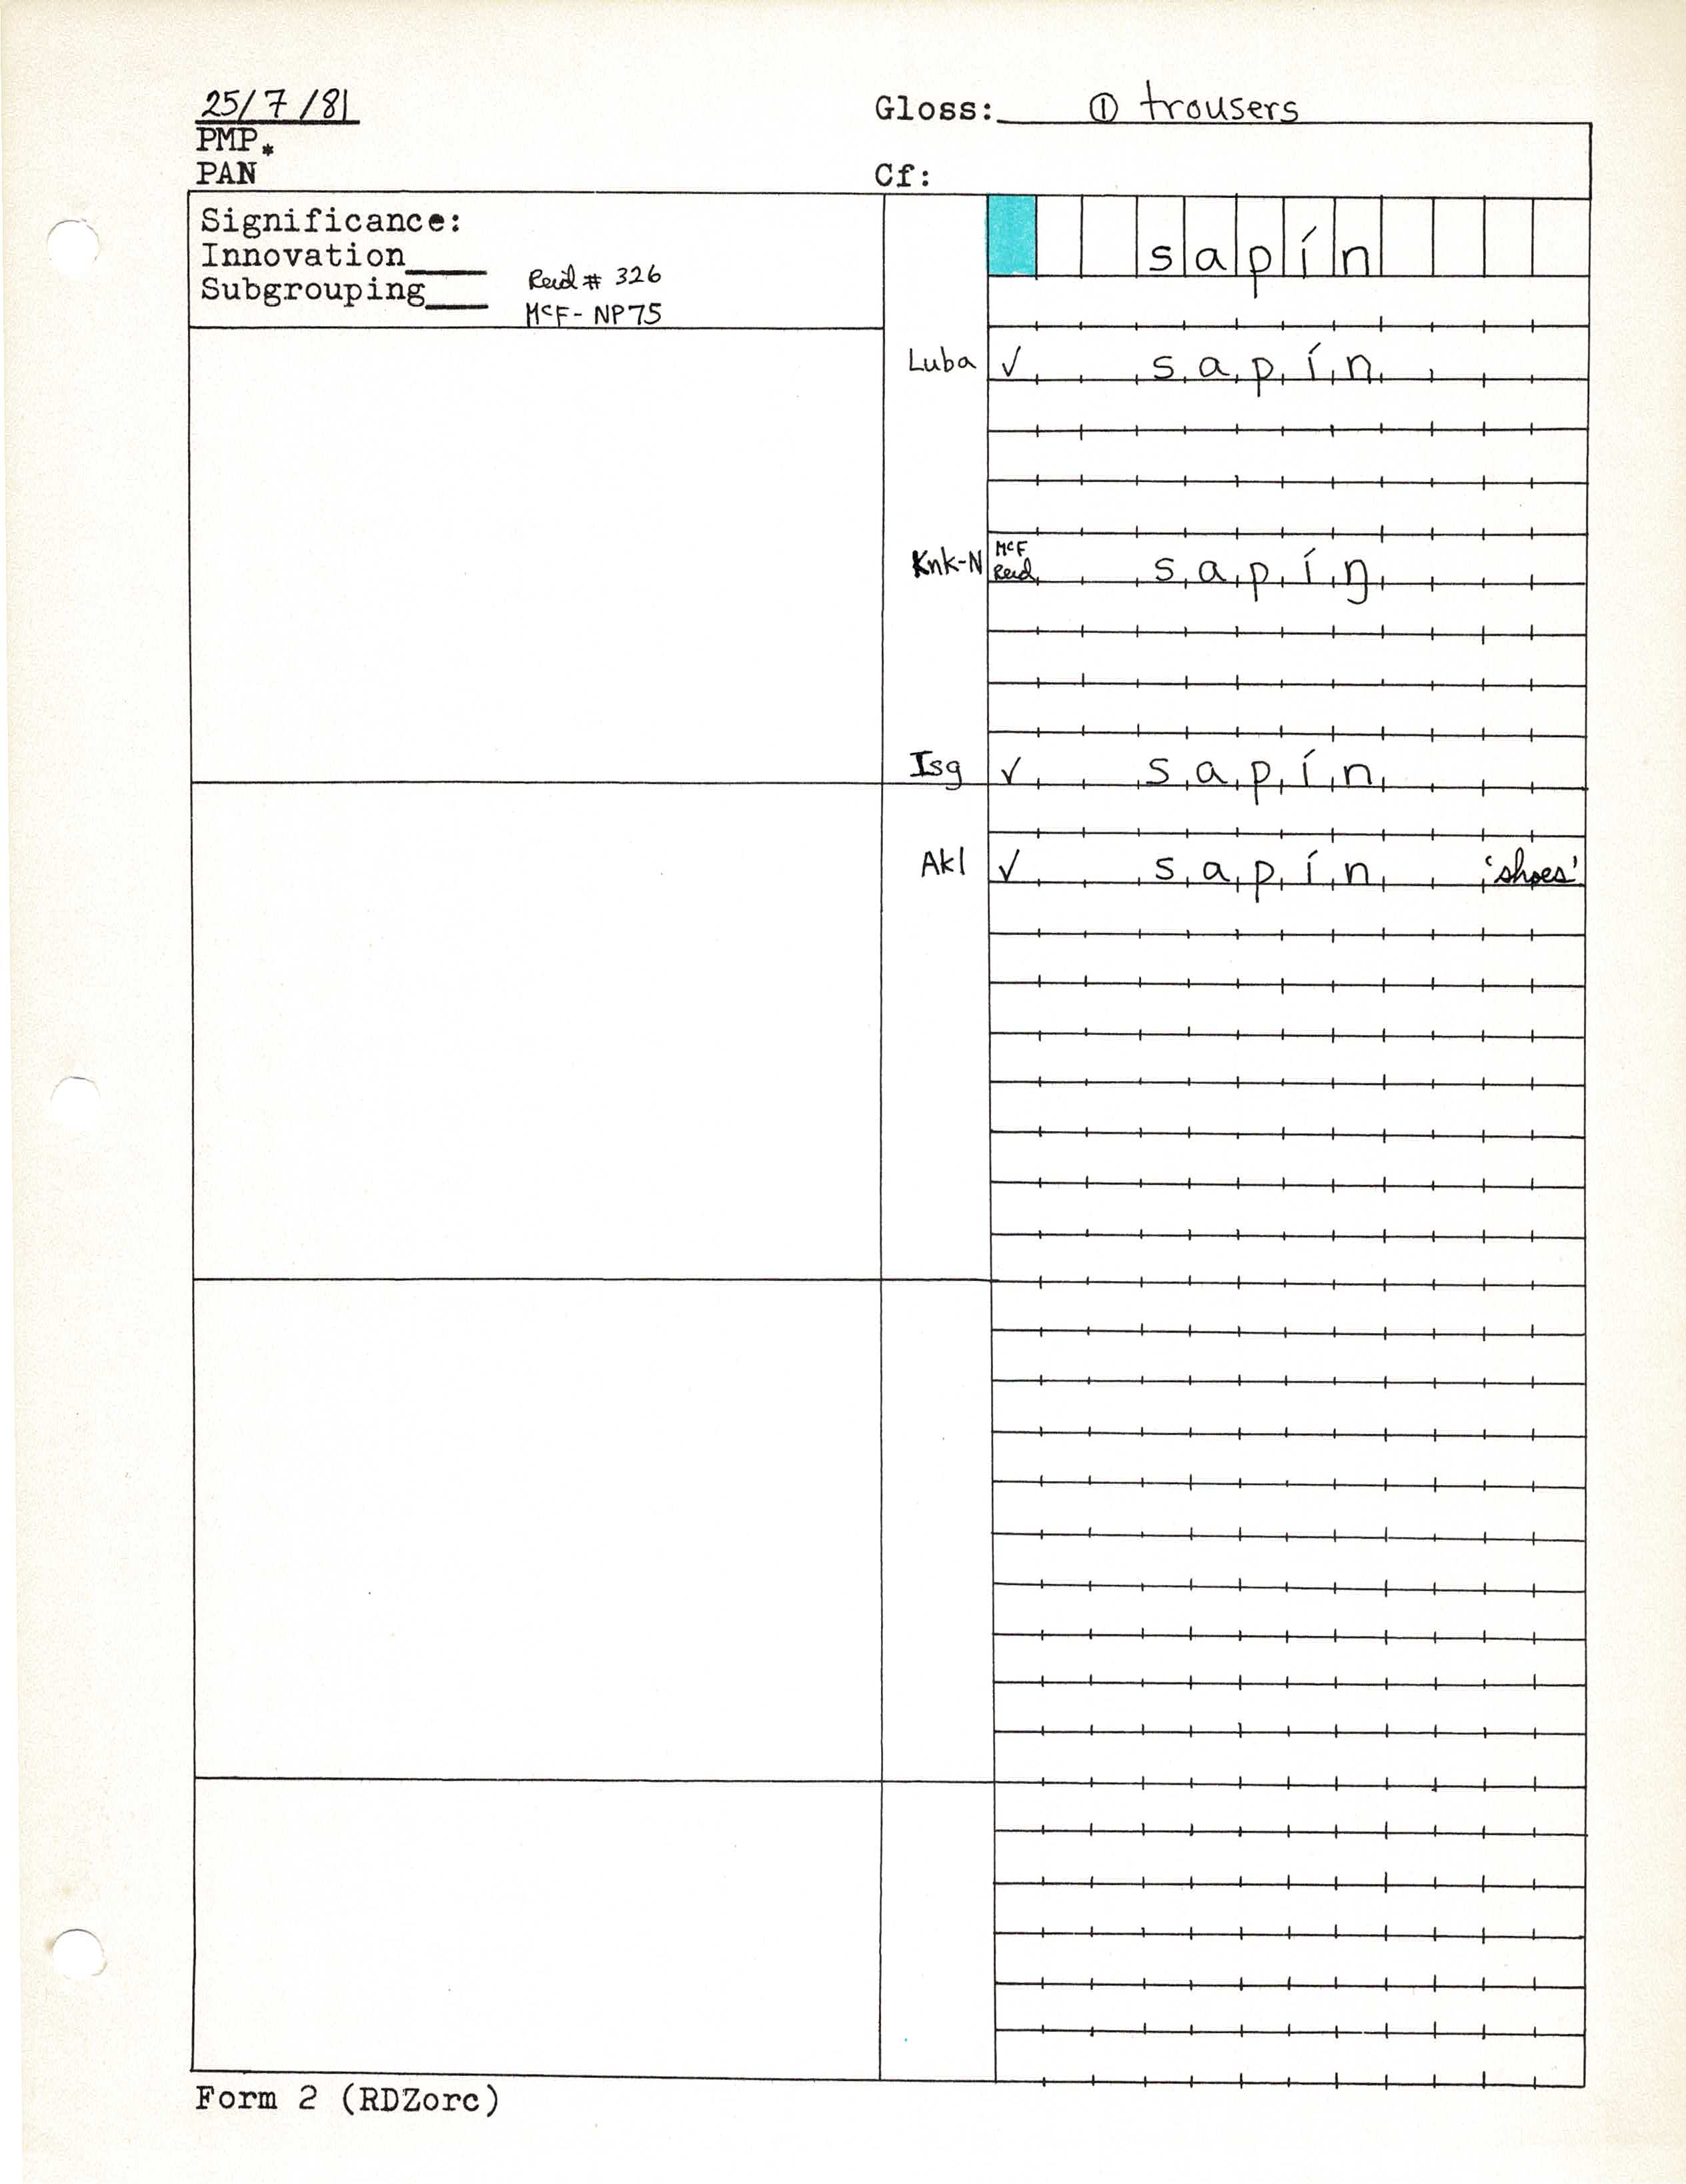 25/7/81
Gloss: ① trousers
PMP*
PAN
Cf:
Significance:
Innovation____
Subgrouping___
Reid # 326
McF- NP75
sapín
Luba ✓ sapín
Knk-N McF Reid sapíŋ
Isg ✓ sapín
Akl ✓ sapín 'shoes'
Form 2 (RDZorc)